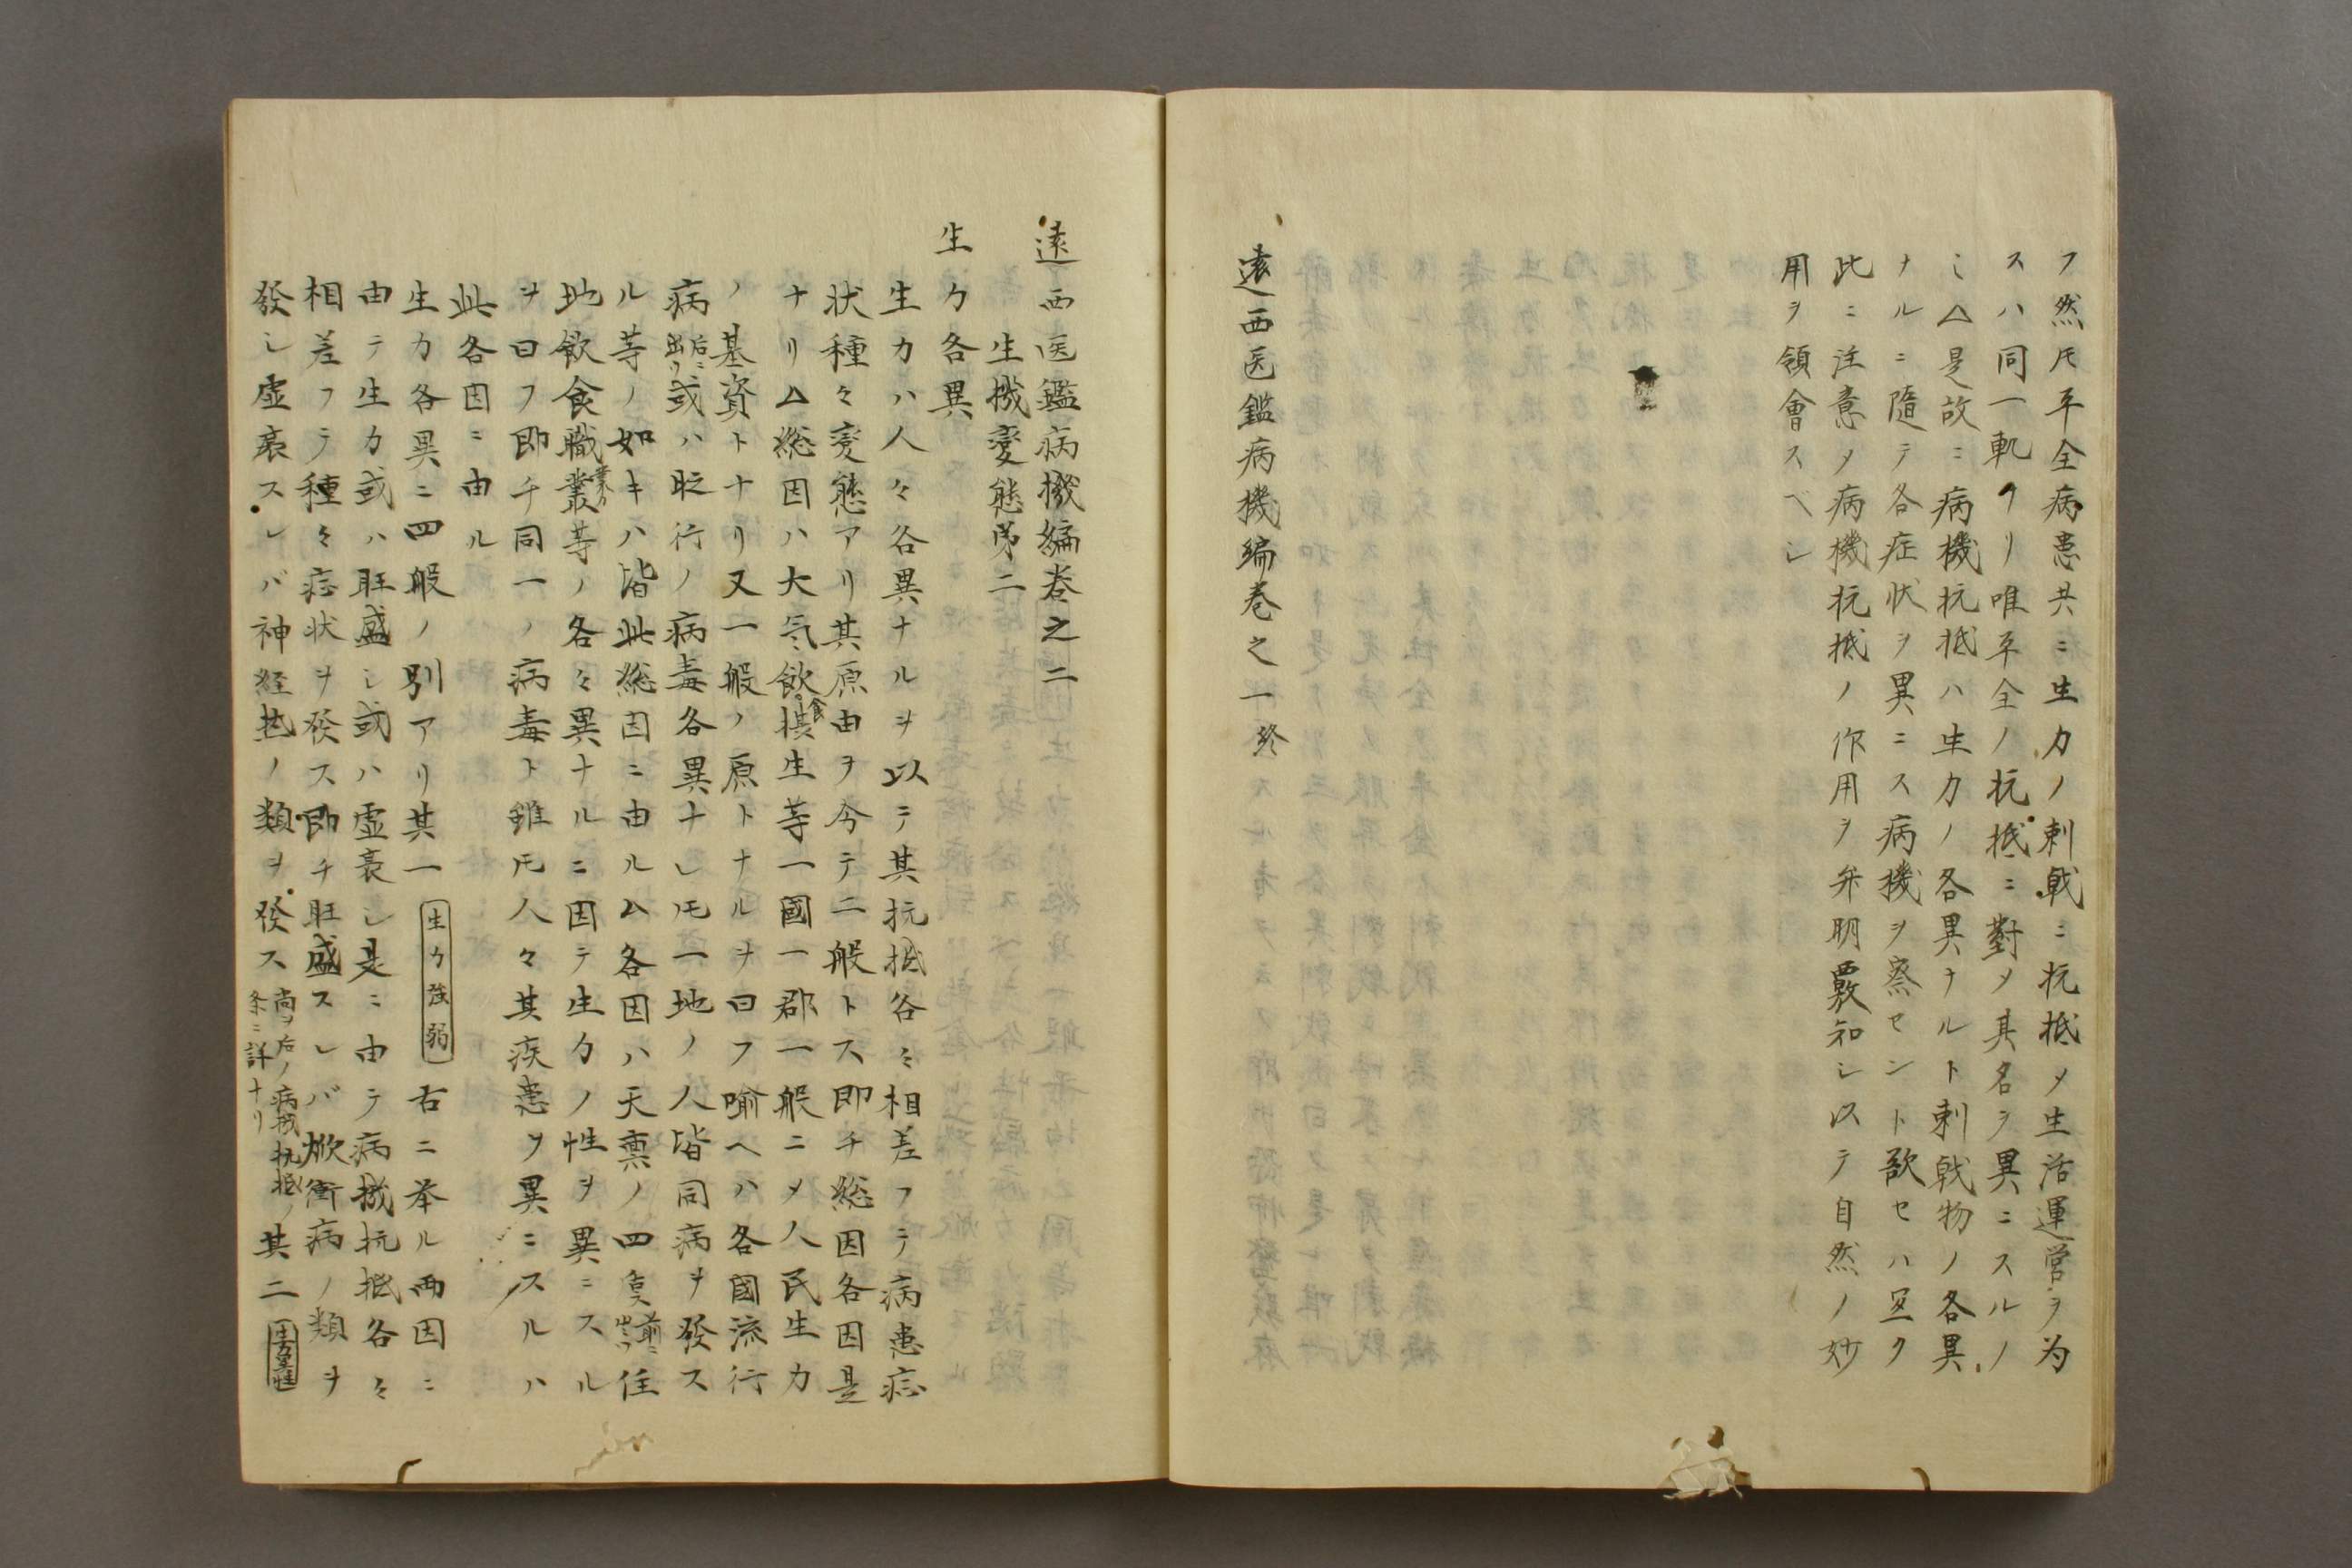 フ然𪜈平全病患共ニ生力ノ刺戟ニ抗抵〆生活運営ヲ为
スハ同一軌タリ唯平全ノ抗抵ニ對〆其名ヲ異ニスルノ
ミ△是故ニ病機抗抵ハ生力ノ各異ナルト刺戟物ノ各異
ナルニ隨テ各症状ヲ異ニス病機ヲ察セント欲セハ宜ク
此ニ注意〆病機抗抵ノ作用ヲ弁明覈知シ以テ自然ノ妙
用ヲ領會スベシ
遠西医鑑病機編巻之一終
遠西医鑑病機編巻之二
生機変態第二
生力各異
生力ハ人々各異ナルヲ以テ其抗抵各々相差フテ病患症
状種々変態アリ其原由ヲ今テ二般トス即チ総因各因是
ナリ△総因ハ大気飲食摂生等一國一郡一般ニ〆人民生力
ノ基資トナリ又一般ノ原トナルヲ曰フ喻ヘハ各國流行
病后ニ出ツ或ハ眨行ノ病毒各異ナレ𪜈一地ノ人皆同病ヲ發ス
ル等ノ如キハ皆此総因ニ由ル△各因ハ天禀ノ四質前ニ出ツ住
地飲食職業等ノ各々異ナルニ因テ生力ノ性ヲ異ニスル
ヲ曰フ即チ同一ノ病毒ト雖𪜈人々其疾患ヲ異ニスルハ
此各因ニ由ル
生力各異ニ四般ノ別アリ其一生力強弱右ニ挙ル両因ニ
由テ生力或ハ旺盛シ或ハ虚衰シ是ニ由テ病機抗抵各々
相差フテ種々症状ヲ發ス即チ旺盛スレバ焮衝病ノ類ヲ
發シ虚衰スレバ神経熱ノ類ヲ發ス尚ヲ后ノ病機抗抵ノ条ニ詳ナリ其二